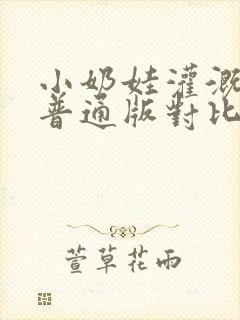 小奶娃灌溉
普通版對比
萱草花雨